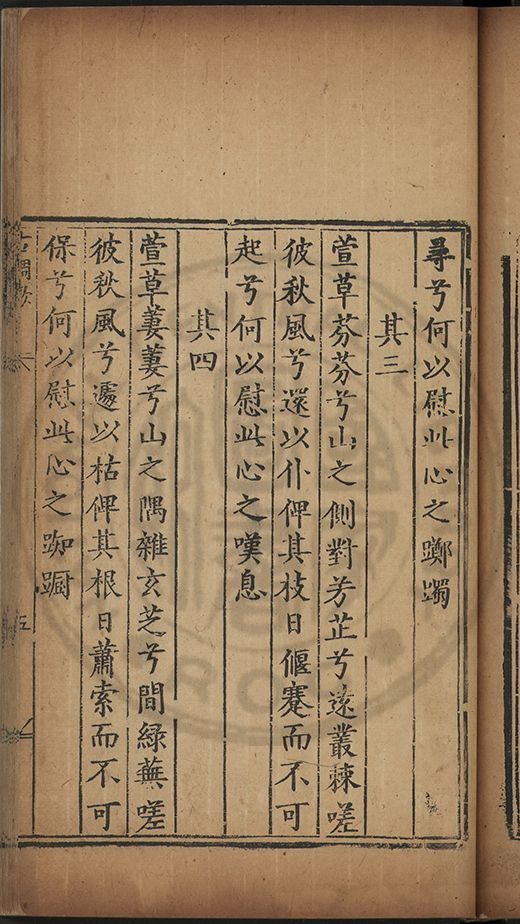 尋兮何以慰此心之躑躅
其三
萱草芬芬兮山之側對芳芷兮遠叢棘嗟
彼秋風兮還以仆俾其枝日偃蹇而不可
起兮何以慰此心之嘆息
其四
萱草萋萋兮山之隅雜玄芝兮間綠蕪嗟
彼秋風兮遽以枯俾其根日蕭索而不可
保兮何以慰此心之踟躕
五